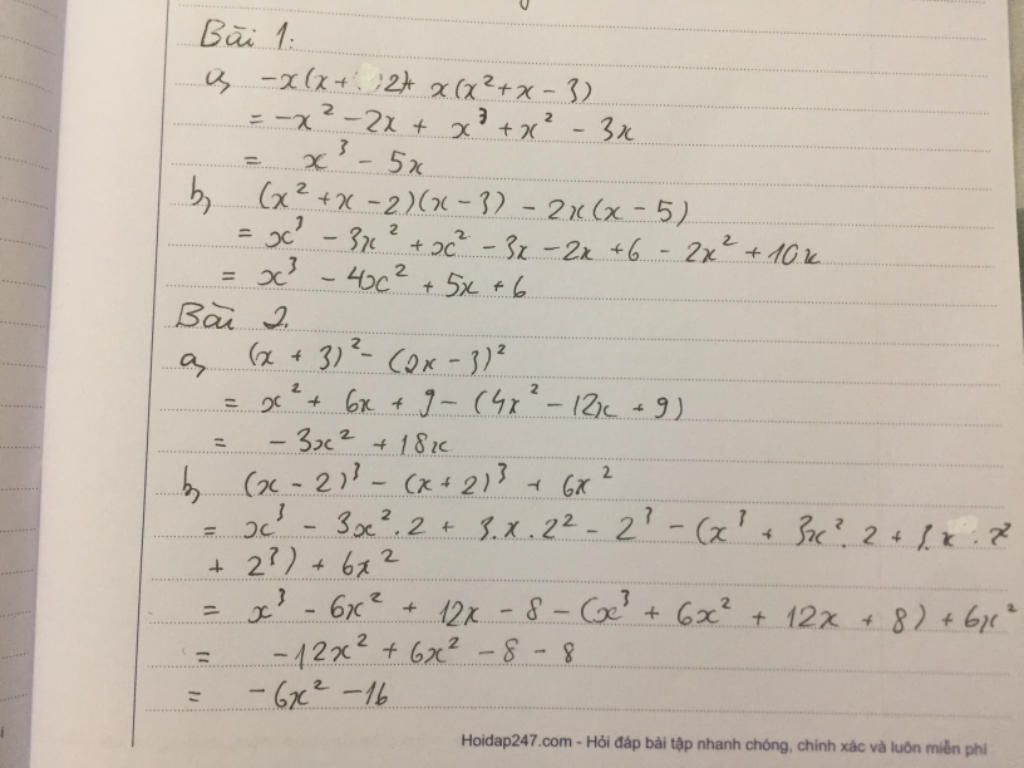 Bài 1:
a, -x(x + 2)+ x(x² + x - 3)
= -x² - 2x + x³ + x² - 3x
= x³ - 5x
b, (x² + x - 2)(x - 3) - 2x(x - 5)
= x³ - 3x² + x² - 3x - 2x + 6 - 2x² + 10x
= x³ - 4x² + 5x + 6
Bài 2.
a, (x + 3)² - (2x - 3)²
= x² + 6x + 9 - (4x² - 12x + 9)
= -3x² + 18x
b, (x - 2)³ - (x + 2)³ + 6x²
= x³ - 3x².2 + 3.x.2² - 2³ - (x³ + 3x².2 + 3.x.2²
+ 2³) + 6x²
= x³ - 6x² + 12x - 8 - (x³ + 6x² + 12x + 8) + 6x²
= -12x² + 6x² - 8 - 8
= -6x² - 16
Hoidap247.com - Hỏi đáp bài tập nhanh chóng, chính xác và luôn miễn phí